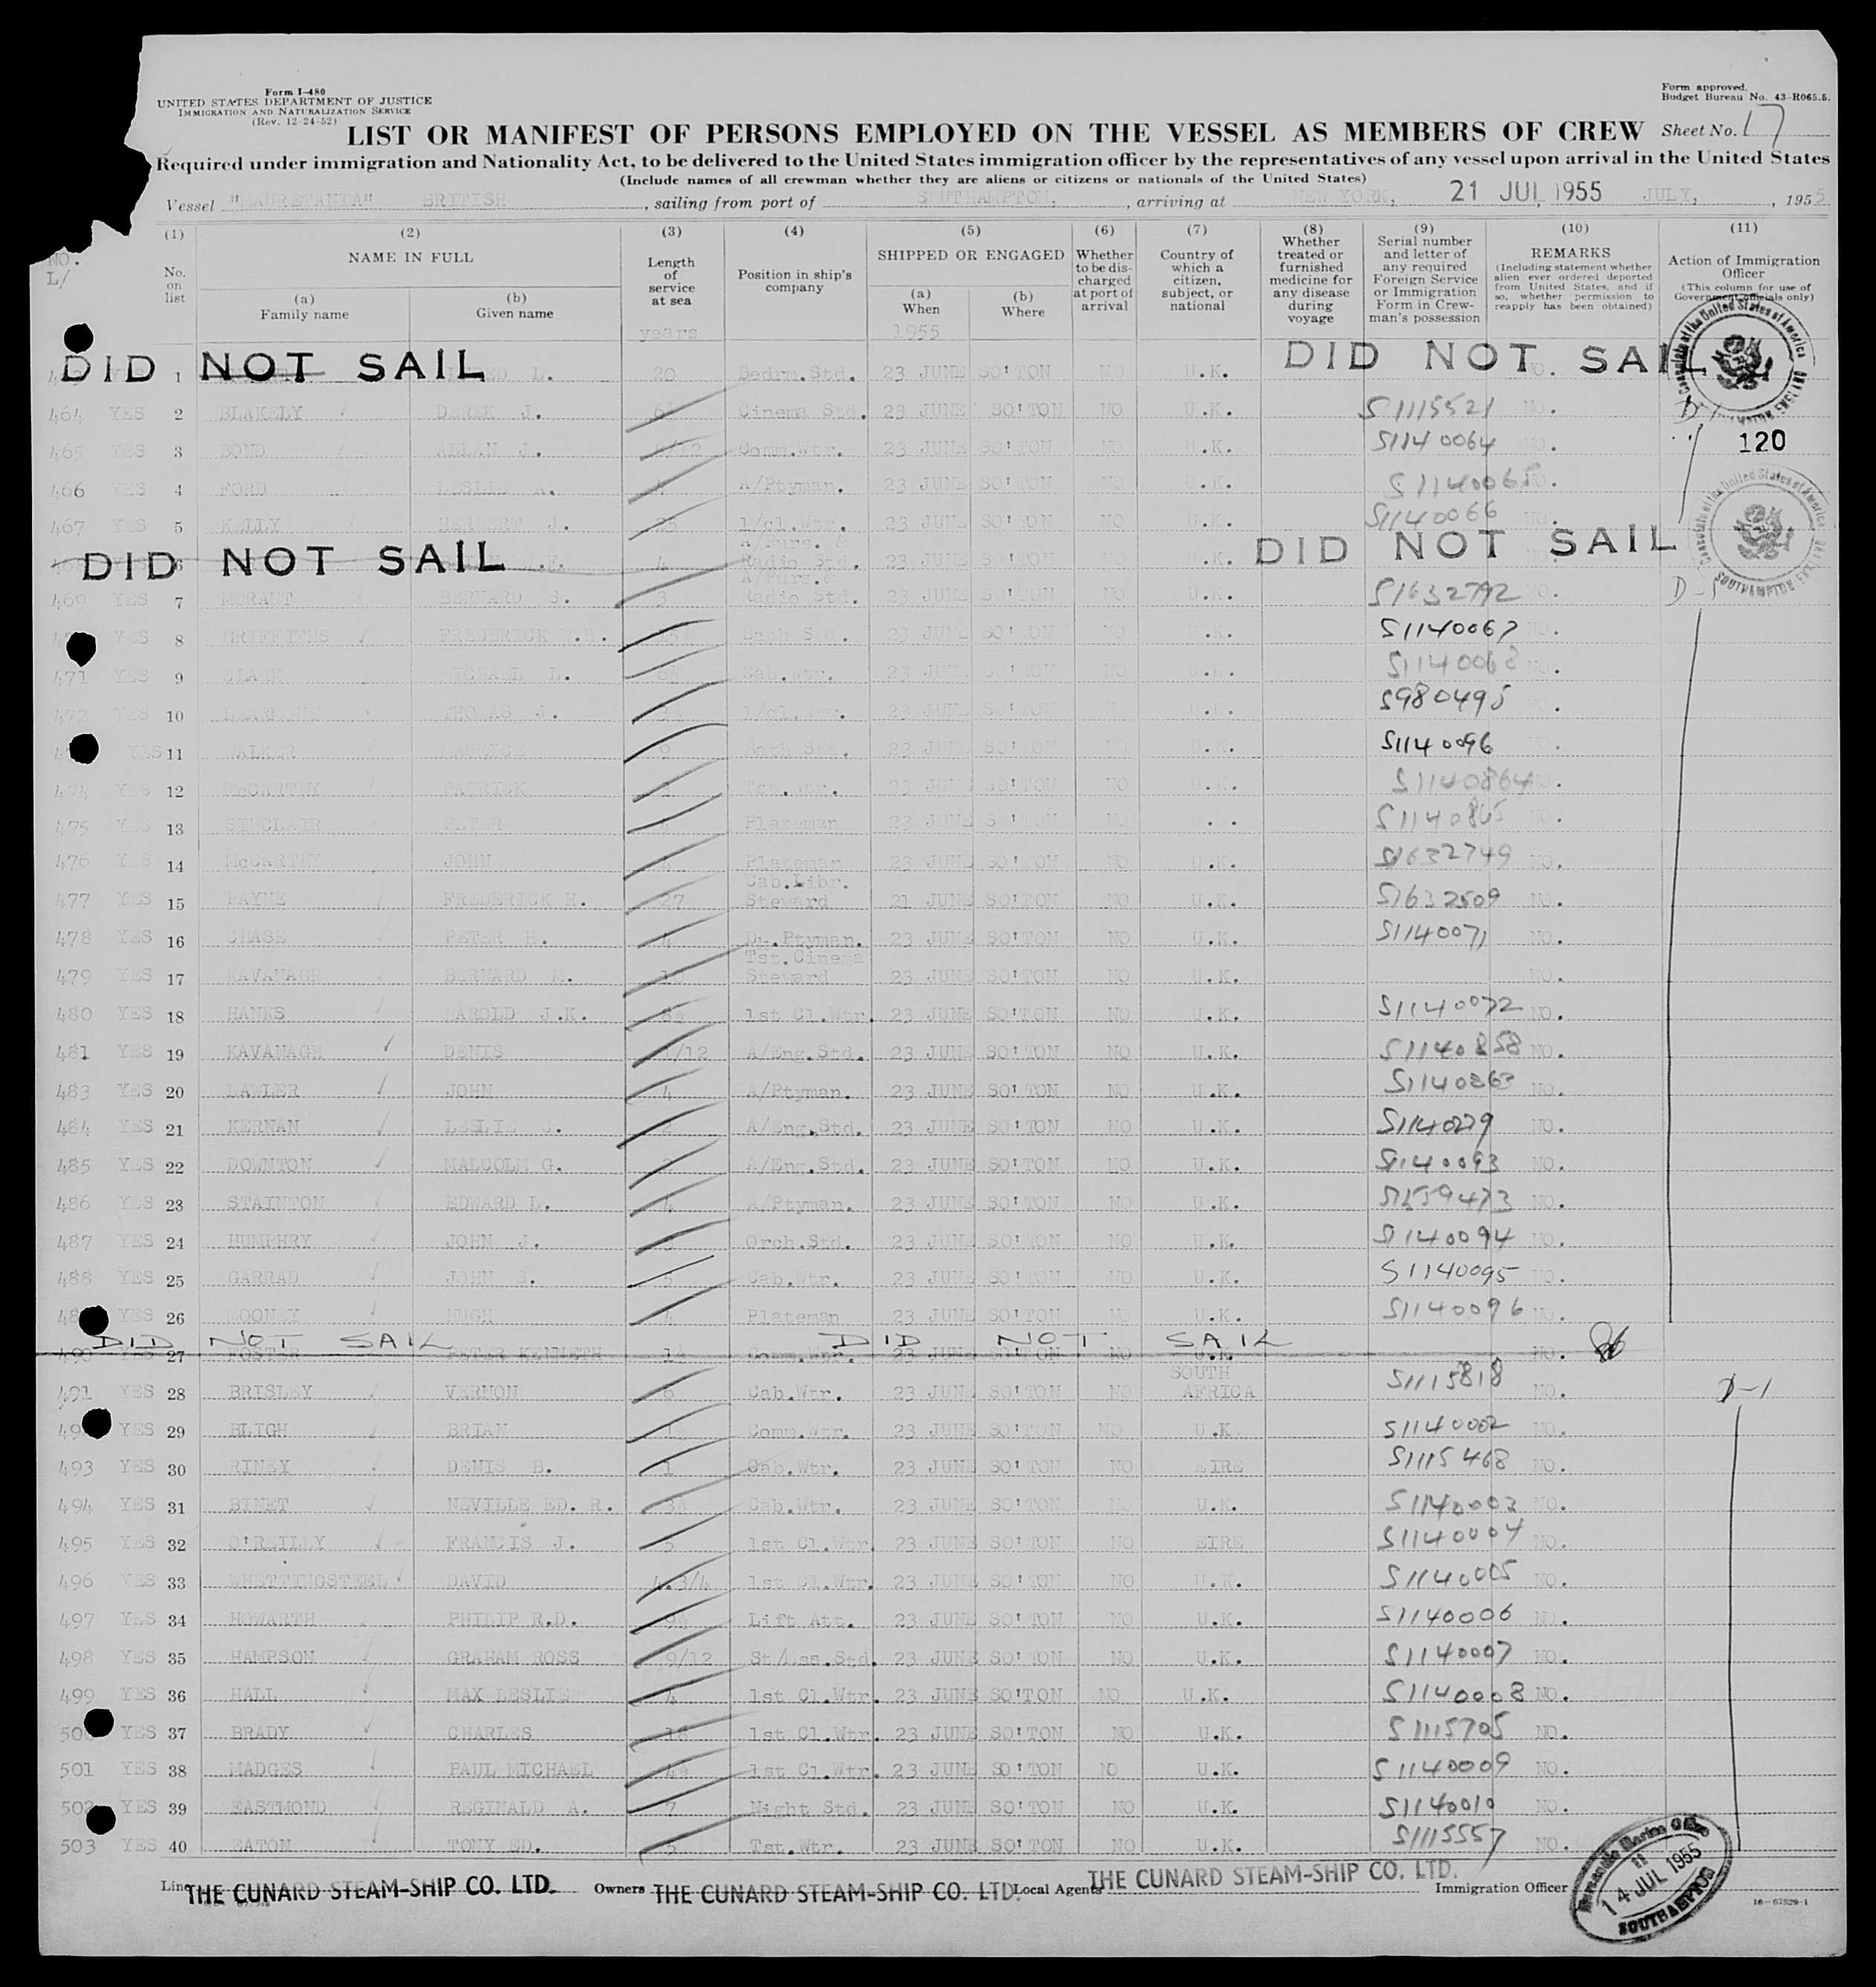 Form I-480
UNITED STATES DEPARTMENT OF JUSTICE
IMMIGRATION AND NATURALIZATION SERVICE
(Rev. 12-24-52)
Form approved.
Budget Bureau No. 43-R065.5.
LIST OR MANIFEST OF PERSONS EMPLOYED ON THE VESSEL AS MEMBERS OF CREW Sheet No. 17
Required under immigration and Nationality Act, to be delivered to the United States immigration officer by the representatives of any vessel upon arrival in the United States
(Include names of all crewman whether they are aliens or citizens or nationals of the United States)
Vessel "MAURETANIA" BRITISH, sailing from port of SOUTHAMPTON, , arriving at NEW YORK, 21 JUL 1955 JULY, , 1955
(1) (2) (3) (4) (5) (6) (7) (8) (9) (10) (11)
NO. L/
No. on list
NAME IN FULL
(a) Family name
(b) Given name
Length of service at sea
years
Position in ship's company
SHIPPED OR ENGAGED
(a) When
1955
(b) Where
Whether to be discharged at port of arrival
Country of which a citizen, subject, or national
Whether treated or furnished medicine for any disease during voyage
Serial number and letter of any required Foreign Service or Immigration Form in Crewman's possession
REMARKS
(Including statement whether alien ever ordered deported from United States, and if so, whether permission to reapply has been obtained)
Action of Immigration Officer
(This column for use of Government officials only)
DID NOT SAIL 1 L. 20 Bedrm.Std. 23 JUNE SO'TON NO U.K. DID NOT SAIL
464 YES 2 BLAKELY DEREK J. Cinema Std. 23 JUNE SO'TON NO U.K. S1115521 NO. D-1
465 YES 3 BOND ALLAN J. Comm.Wtr. 23 JUNE SO'TON NO U.K. S1140064 NO. 120
466 YES 4 FORD LESLIE A. 4 A/Ptyman. 23 JUNE SO'TON NO U.K. S1140065 NO.
467 YES 5 KELLY HERBERT J. 25 1/cl.Wtr. 23 JUNE SO'TON NO U.K. S1140066 NO.
DID NOT SAIL 6 4 A/Purs. & Radio Std. 23 JUNE SO'TON U.K. DID NOT SAIL
469 YES 7 MORANT BERNARD S. 3 A/Purs.& Radio Std. 23 JUNE SO'TON NO U.K. S1632792 NO. D-1
YES 8 GRIFFITHS FREDERICK W.H. Bath Std. 23 JUNE SO'TON NO U.K. S1140067 NO.
471 YES 9 CLARK MICHAEL L. Cab.Wtr. 23 JUNE SO'TON NO U.K. S1140068 NO.
472 YES 10 THOMAS J. 1/cl.Wtr. 23 JUNE SO'TON U.K. S980495
YES 11 WALKER MAURICE 9 Bath Std. 23 JUNE SO'TON NO U.K. S1140096 NO.
474 YES 12 McCARTHY PATRICK Wtr. 23 JUNE SO'TON NO U.K. S1140864 NO.
475 YES 13 SINCLAIR PETER 4 Plateman 23 JUNE SO'TON NO S1140865 NO.
476 YES 14 McCARTHY JOHN 4 Plateman 23 JUNE SO'TON NO U.K. S1632749 NO.
477 YES 15 PAYNE FREDERICK H. 27 Cab.Libr. Steward 21 JUNE SO'TON NO U.K. S1632509 NO.
478 YES 16 CHASE PETER H. 4 Ptyman. 23 JUNE SO'TON NO U.K. S1140071 NO.
479 YES 17 KAVANAGH BERNARD M. Tst.Cinema Steward 23 JUNE SO'TON NO U.K. NO.
480 YES 18 HANKS HAROLD J.K. 1st Cl.Wtr. 23 JUNE SO'TON NO U.K. S1140072 NO.
481 YES 19 KAVANAGH DENIS /12 A/Eng.Std. 23 JUNE SO'TON NO U.K. S1140858 NO.
483 YES 20 LAWLER JOHN 4 A/Ptyman. 23 JUNE SO'TON NO U.K. S1140863 NO.
484 YES 21 KERNAN LESLIE A/Eng.Std. 23 JUNE SO'TON NO U.K. S1140279 NO.
485 YES 22 DOWNTON MALCOLM G. A/Eng.Std. 23 JUNE SO'TON NO U.K. S1140093 NO.
486 YES 23 STAINTON EDWARD L. 4 A/Ptyman. 23 JUNE SO'TON NO U.K. S1559473 NO.
487 YES 24 HUMPHRY JOHN J. Orch.Std. 23 JUNE SO'TON NO U.K. S1140094 NO.
488 YES 25 GARRAD JOHN S. 5 Cab.Wtr. 23 JUNE SO'TON NO U.K. S1140095 NO.
YES 26 MOONEY HUGH Plateman 23 JUNE SO'TON NO U.K. S1140096 NO.
DID NOT SAIL DID NOT SAIL
490 YES 27 FOSTER PETER KENNETH Comm.Wtr. 23 JUNE SO'TON NO U.K. NO.
491 YES 28 BRISLEY VERNON 6 Cab.Wtr. 23 JUNE SO'TON NO SOUTH AFRICA S1115818 NO. D-1
YES 29 BLIGH BRIAN Comm.Wtr. 23 JUNE SO'TON NO U.K S1140002 NO.
493 YES 30 RINEY DENIS B. 1 Cab.Wtr. 23 JUNE SO'TON NO EIRE S1115468 NO.
494 YES 31 BINET NEVILLE ED. R. Cab.Wtr. 23 JUNE SO'TON NO U.K. S1140003 NO.
495 YES 32 O'REILLY FRANCIS J. 5 1st Cl.Wtr. 23 JUNE SO'TON NO EIRE S1140004 NO.
496 YES 33 WHETTINGSTEEL DAVID 4.3/4 1st Cl.Wtr. 23 JUNE SO'TON NO U.K. S1140005 NO.
497 YES 34 HOWARTH PHILIP R.D. Lift Att. 23 JUNE SO'TON NO U.K. S1140006 NO.
498 YES 35 HAMPSON GRAHAM ROSS 9/12 St/Mss.Std. 23 JUNE SO'TON NO U.K. S1140007 NO.
499 YES 36 HALL MAX LESLIE 4 1st Cl.Wtr. 23 JUNE SO'TON NO U.K. S1140008 NO.
YES 37 BRADY CHARLES 18 1st Cl.Wtr. 23 JUNE SO'TON NO U.K. S1115705 NO.
501 YES 38 MADGES PAUL MICHAEL 1st Cl.Wtr. 23 JUNE SO'TON NO U.K. S1140009 NO.
502 YES 39 EASTMOND REGINALD A. 7 Night Std. 23 JUNE SO'TON NO U.K. S1140010 NO.
503 YES 40 EATON TONY ED. 5 Tst.Wtr. 23 JUNE SO'TON NO U.K. S1115557 NO.
Line THE CUNARD STEAM-SHIP CO. LTD. Owners THE CUNARD STEAM-SHIP CO. LTD. Local Agents THE CUNARD STEAM-SHIP CO. LTD. Immigration Officer
Mercantile Marine Office
11
14 JUL 1955
SOUTHAMPTON
16-67529-1
Consulate of the United States of America
SOUTHAMPTON ENGLAND